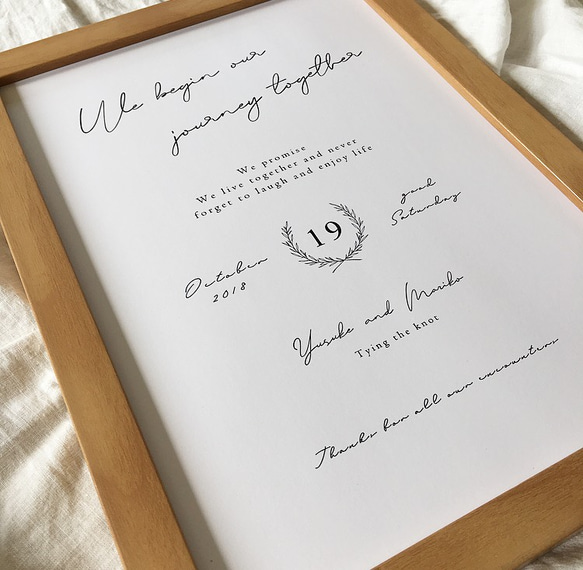 We begin our
journey together
We promise
We live together and never
forget to laugh and enjoy life
October
2018
19
good
Saturday
Yusuke and Mariko
Tying the knot
Thanks for all our encounters